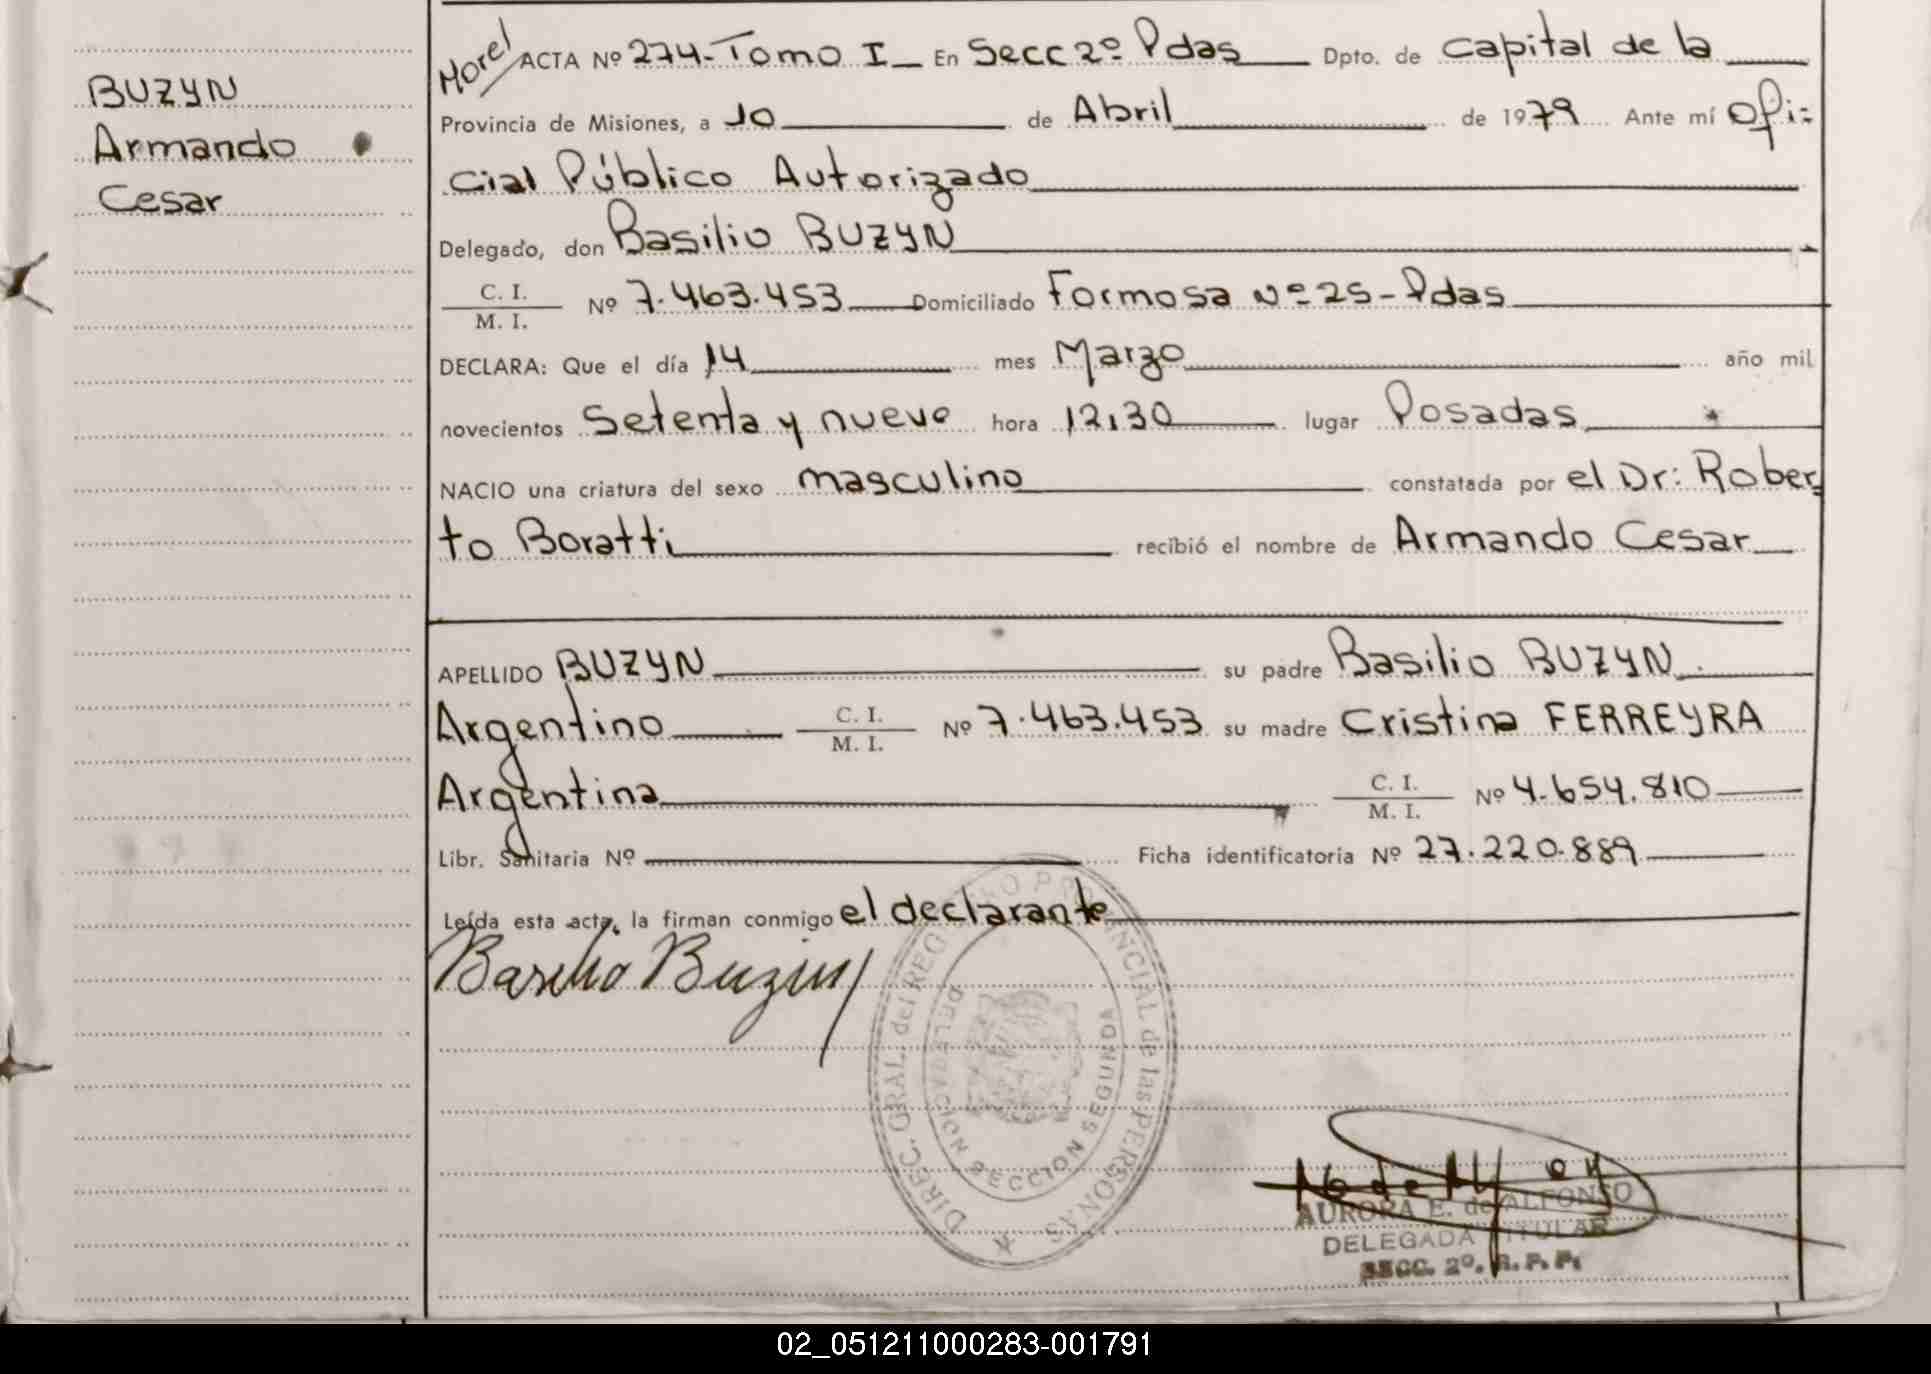 BUZYN
Armando
Cesar
Morel ACTA Nº 274-Tomo I En Secc 2º Pdas Dpto. de Capital de la
Provincia de Misiones, a 10 de Abril de 1979 Ante mí Ofi-
cial Público Autorizado
Delegado, don Basilio BUZYN
C. I.
M. I. Nº 7.463.453 Domiciliado Formosa Nº 25-Pdas
DECLARA: Que el día 14 mes Marzo año mil
novecientos Setenta y nueve hora 12,30 lugar Posadas
NACIO una criatura del sexo masculino constatada por el Dr: Rober-
to Boratti recibió el nombre de Armando Cesar
APELLIDO BUZYN su padre Basilio BUZYN.
Argentino C. I.
M. I. Nº 7.463.453 su madre Cristina FERREYRA
Argentina C. I.
M. I. Nº 4.654.810
Libr. Sanitaria Nº Ficha identificatoria Nº 27.220.889
Leída esta acta, la firman conmigo el declarante
Basilio Buzin
DIREC. GRAL. del REGISTRO PROVINCIAL de las PERSONAS
DELEGACION SECCION SEGUNDA
AURORA E. de ALFONSO
DELEGADA TITULAR
SECC. 2º. R. P. P.
02_051211000283-001791